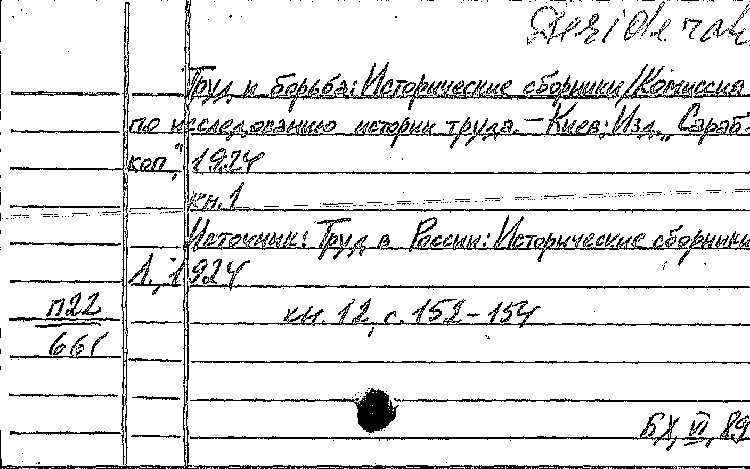 Desiderat
Труд и борьба: Исторические сборники / Комиссия
по исследованию истории труда. – Киев: Изд. „Сораб-
коп", 1924
кн. 1
Источник: Труд в России: Исторические сборники
Л., 1924
П22 кн. 12, с. 152–154
661
БХ, VI, 89